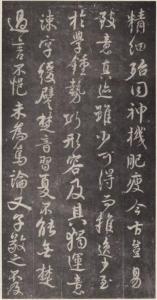 精細殆同神機肥瘦今古豈易
致意真迹雖少可得而推逸少至
於學鍾勢巧形密及其獨運意
疎字緩譬楚音習夏不能無楚
過言不悒未為篤論又子敬之不及